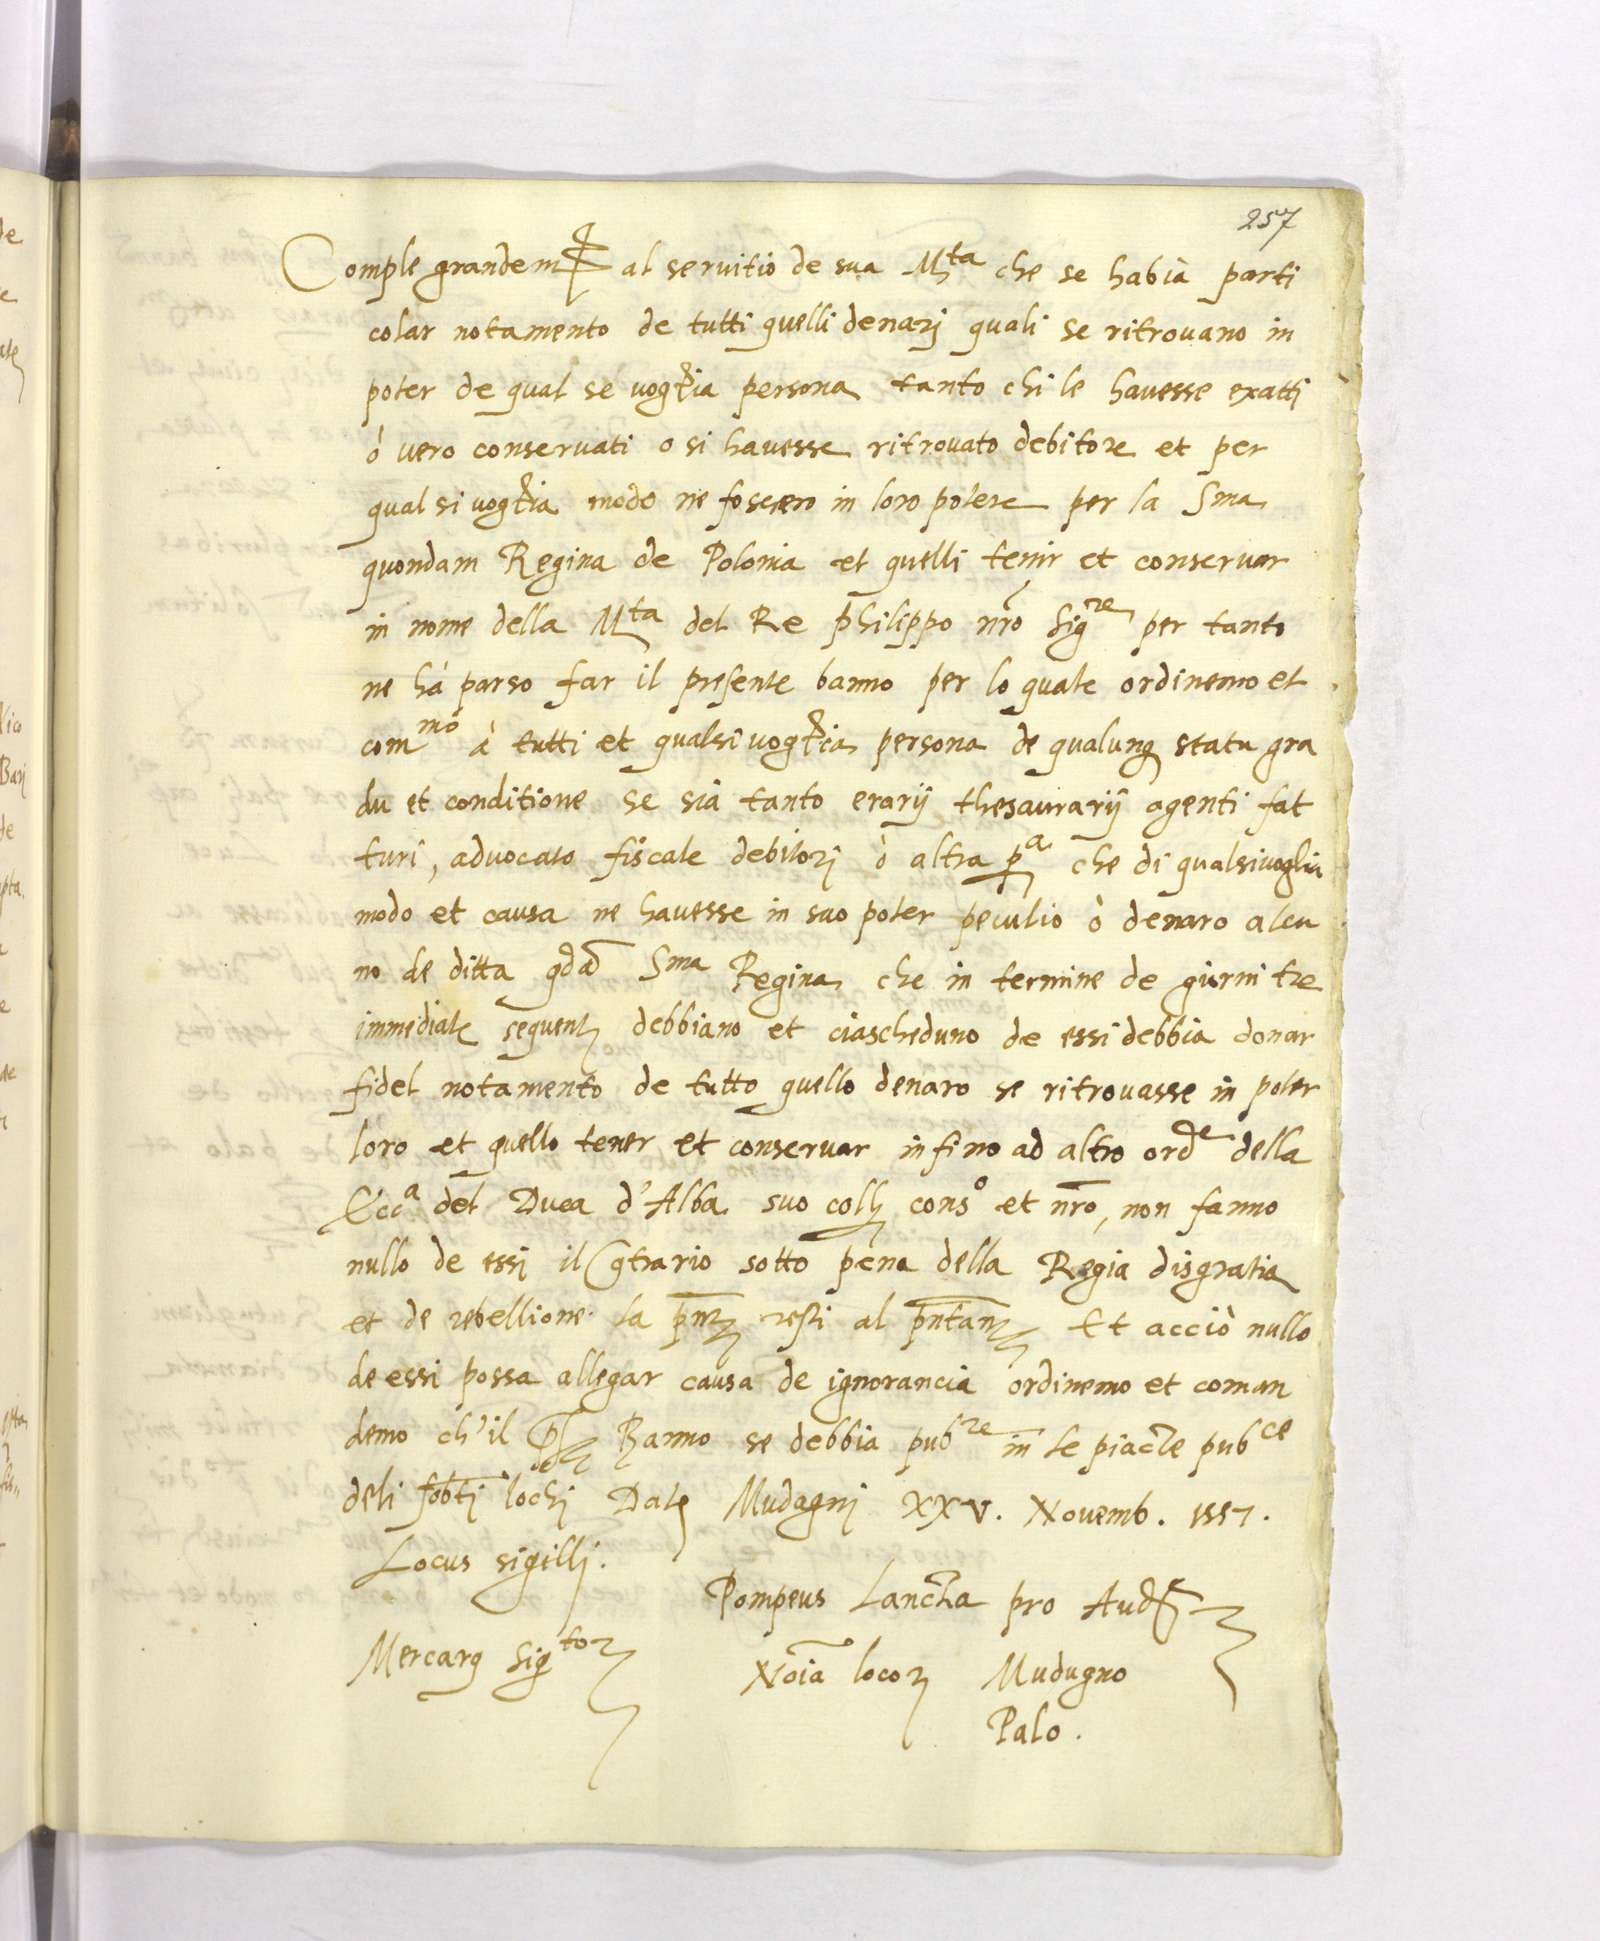 257
Comple grandem al servitio de sua Mta che se habia parti
colar notamento de tutti quelli denarj quali se ritrovano in
poter de qual se voglia persona tanto chi le havesse exatti
ò vero conservati o si havesse ritrovato debitore et per
qual si voglia modo ne fossero in loro potere per la Sma
quondam Regina de Polonia et quelli tenir et conservar
in nome della Mta del Re philippo nro Sigre per tanto
ne hà parso far il presente banno per lo quale ordinemo et
commo à tutti et qualsivoglia persona de qualunq statu gra
du et conditione se sia tanto erarij thesaurarij agenti fat
turi, advocato fiscale debitorj ò altra pa che di qualsivoglia
modo et causa ne havesse in suo poter peculio ò denaro alcu
no de ditta qda Sma Regina che in termine de giurni tre
immediate sequent debbiano et ciascheduno de essi debbia donar
fidel notamento de tutto quello denaro se ritrovasse in poter
loro et quello tener et conservar infino ad altro orde della
Ecca del Duca d'Alba suo coll conso et nro, non fanno
nullo de essi il contrario sotto pena della Regia disgratia
et de rebellione. la pnte resti al pntante Et acciò nullo
de essi possa allegar causa de ignorancia ordinemo et coman
demo ch'il Banno se debbia pubre in le piacze pubce
deli lochi Date Mudugnj XXV. Novemb. 1557.
Locus sigillj.
Pompeus Lancza pro Aud
Mercarg Sigtor
Noia locor Mudugno
Palo.